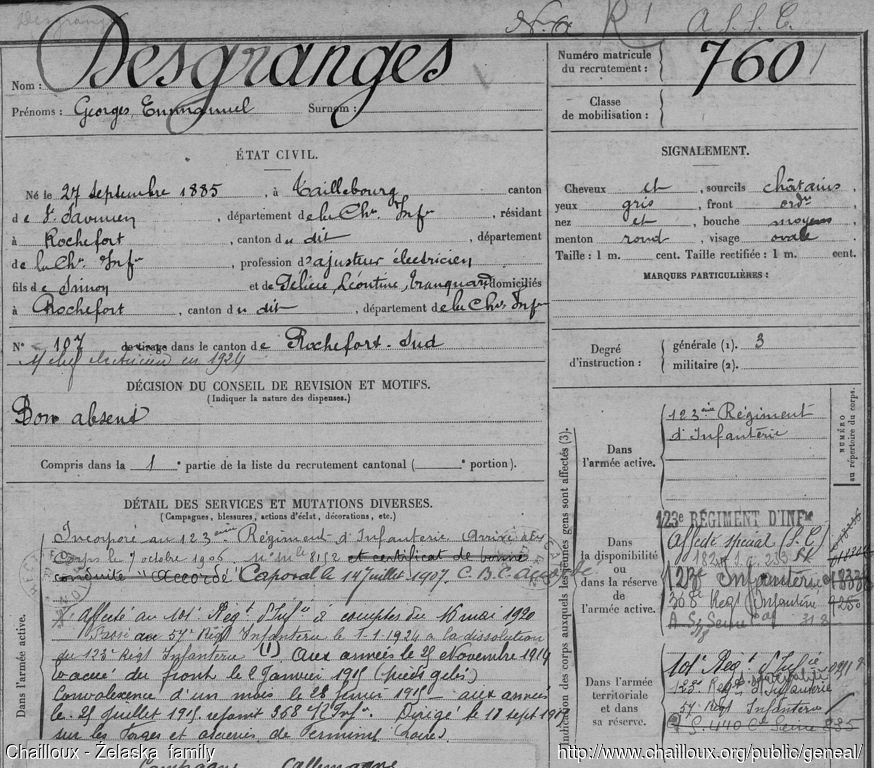 Desgranges
N° R1 A.S.S.E.
Nom : Desgranges
Prénoms : Georges, Emmanuel Surnom :
Numéro matricule du recrutement : 760
Classe de mobilisation :
ÉTAT CIVIL.
Né le 27 septembre 1885, à Taillebourg canton
de St Savinien, département de la Chte Infre, résidant
à Rochefort, canton du dit, département
de la Chte Infre, profession d'ajusteur électricien
fils de Simon et de Félicie, Léontine, domiciliés
à Rochefort, canton du dit, département de la Chte Infre
N° 107 de tirage dans le canton de Rochefort-Sud
électricien en 1924
SIGNALEMENT.
Cheveux et, sourcils châtains,
yeux gris, front ordre
nez et, bouche moyens
menton rond, visage ovale
Taille : 1 m. cent. Taille rectifiée : 1 m. cent.
MARQUES PARTICULIÈRES :
Degré d'instruction : générale (1). 3
militaire (2).
DÉCISION DU CONSEIL DE REVISION ET MOTIFS.
(Indiquer la nature des dispenses.)
Bon absent
Compris dans la 1e partie de la liste du recrutement cantonal ( e portion).
DÉTAIL DES SERVICES ET MUTATIONS DIVERSES.
(Campagnes, blessures, actions d'éclat, décorations, etc.)
Dans l'armée active.
Incorporé au 123ème Régiment d'Infanterie Arrivé au
Corps le 7 octobre 1906 n° mle 8152 et certificat de bonne
conduite "Accordé" Caporal le 14 juillet 1907. C.B.C. Accordé
Affecté au 101e Regt d'Infie à compter du 16 mai 1920
Passé au 57e Regt Infanterie le 1-1-1924 à la dissolution
du 123e Regt Infanterie (1) Aux armées le 29 Novembre 1914
Evacué du front le 2 Janvier 1915 (pieds gelés)
Convalescence d'un mois le 28 janvier 1915 aux armées
le 25 juillet 1915 368e R. Inf. Dirigé le 18 sept 1915
sur les Forges et aciéries de Firminy (Loire)
Campagne Allemagne
Indication des corps auxquels les jeunes gens sont affectés (3).
NUMÉRO au répertoire du corps.
Dans l'armée active.
123ème Régiment
d'Infanterie
Dans la disponibilité ou dans la réserve de l'armée active.
123e RÉGIMENT D'INFie
Affecté spécial (S.C.)
123e Infanterie
368e Regt Infanterie
Dans l'armée territoriale et dans sa réserve.
101e Regt d'Infie
123e Regt d'Infanterie
57e Regt Infanterie
Chailloux - Żelaska family
http://www.chailloux.org/public/geneal/